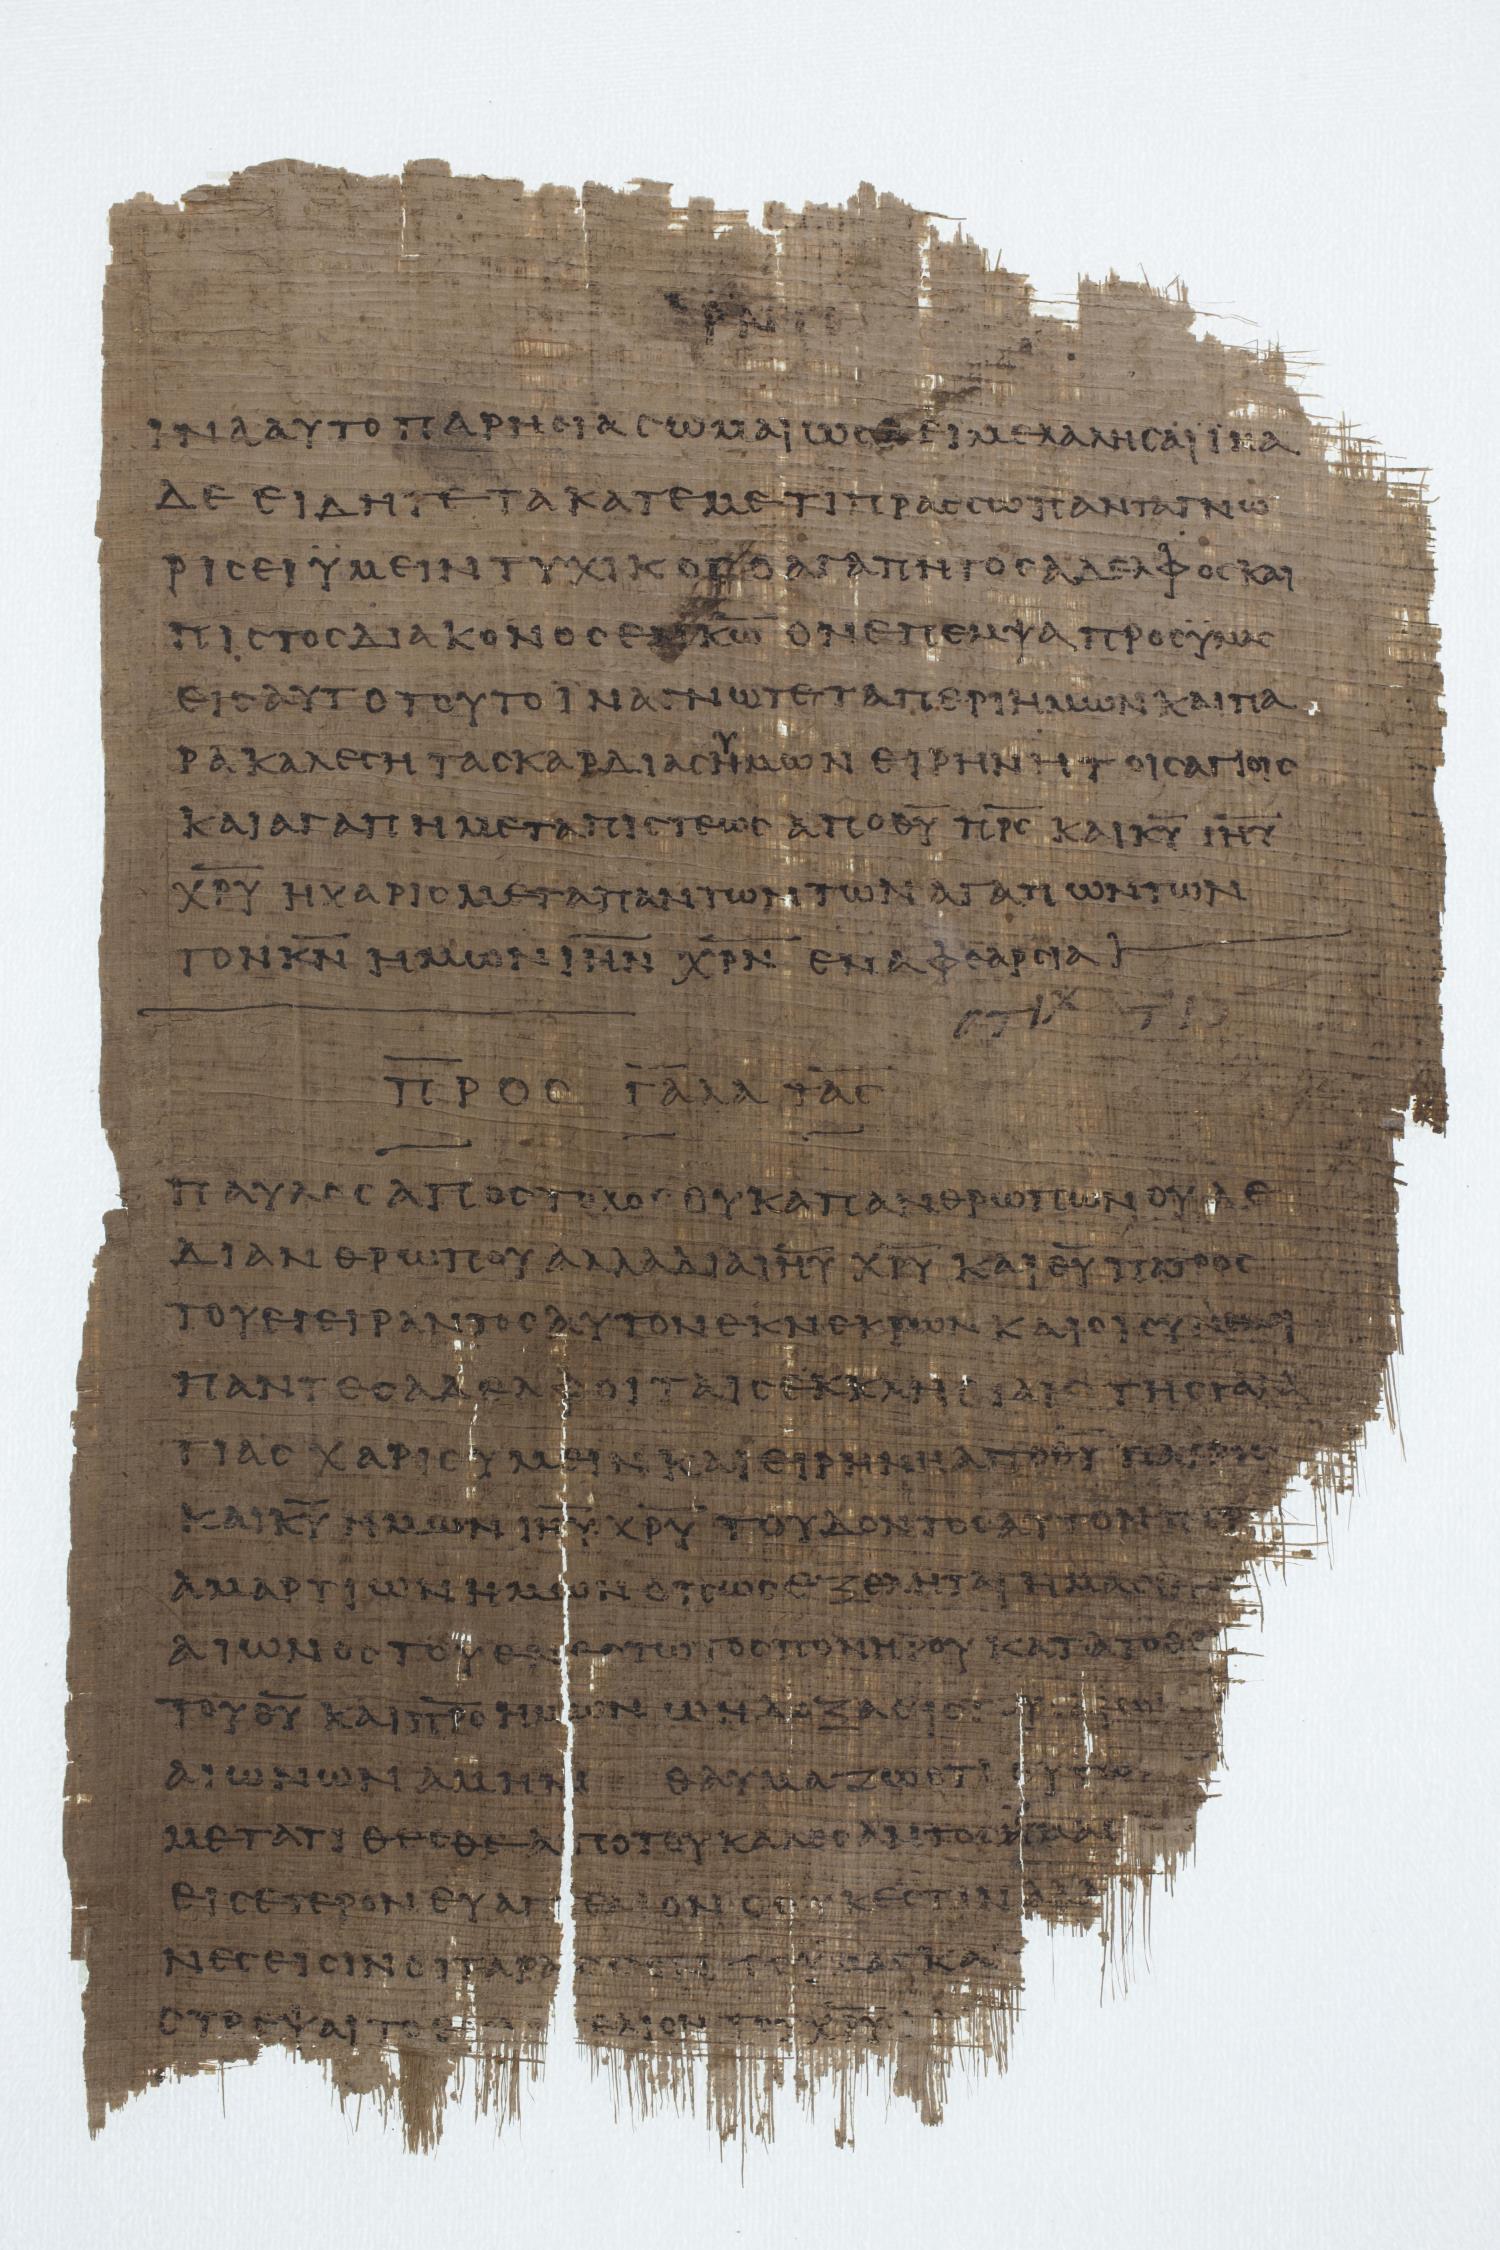 ΡΝΗ
ΙΝΑ ΑΥΤΟ ΠΑΡΗΣΙΑΣΩΜΑΙ ΩΣ ΔΕΙ ΜΕ ΛΑΛΗΣΑΙ ΙΝΑ
ΔΕ ΕΙΔΗΤΕ ΤΑ ΚΑΤ ΕΜΕ ΤΙ ΠΡΑΣΣΩ ΠΑΝΤΑ ΓΝΩ
ΡΙΣΕΙ ΫΜΕΙΝ ΤΥΧΙΚΟΣ Ο ΑΓΑΠΗΤΟΣ ΑΔΕΛΦΟΣ ΚΑΙ
ΠΙΣΤΟΣ ΔΙΑΚΟΝΟΣ ΕΝ Κ̅Ω̅ ΟΝ ΕΠΕΜΨΑ ΠΡΟΣ ΫΜΑΣ
ΕΙΣ ΑΥΤΟ ΤΟΥΤΟ ΙΝΑ ΓΝΩΤΕ ΤΑ ΠΕΡΙ ΗΜΩΝ ΚΑΙ ΠΑ
ΡΑΚΑΛΕΣΗ ΤΑΣ ΚΑΡΔΙΑΣ ΥΜΩΝ ΕΙΡΗΝΗ ΤΟΙΣ ΑΓΙΟΙΣ
ΚΑΙ ΑΓΑΠΗ ΜΕΤΑ ΠΙΣΤΕΩΣ ΑΠΟ Θ̅Υ̅ Π̅Ρ̅Σ̅ ΚΑΙ Κ̅Υ̅ Ι̅Η̅Υ̅
Χ̅Ρ̅Υ̅ Η ΧΑΡΙΣ ΜΕΤΑ ΠΑΝΤΩΝ ΤΩΝ ΑΓΑΠΩΝΤΩΝ
ΤΟΝ Κ̅Ν̅ ΗΜΩΝ Ι̅Η̅Ν̅ Χ̅Ρ̅Ν̅ ΕΝ ΑΦΘΑΡΣΙΑ
ΣΤΙΧ ΤΙϚ
ΠΡΟΣ ΓΑΛΑΤΑΣ
ΠΑΥΛΟΣ ΑΠΟΣΤΟΛΟΣ ΟΥΚ ΑΠ ΑΝΘΡΩΠΩΝ ΟΥΔΕ
ΔΙ ΑΝΘΡΩΠΟΥ ΑΛΛΑ ΔΙΑ Ι̅Η̅Υ̅ Χ̅Ρ̅Υ̅ ΚΑΙ Θ̅Υ̅ ΠΑΤΡΟΣ
ΤΟΥ ΕΓΕΙΡΑΝΤΟΣ ΑΥΤΟΝ ΕΚ ΝΕΚΡΩΝ ΚΑΙ ΟΙ ΣΥΝ ΕΜΟΙ
ΠΑΝΤΕΣ ΑΔΕΛΦΟΙ ΤΑΙΣ ΕΚΚΛΗΣΙΑΙΣ ΤΗΣ ΓΑΛΑ
ΤΙΑΣ ΧΑΡΙΣ ΥΜΕΙΝ ΚΑΙ ΕΙΡΗΝΗ ΑΠΟ Θ̅Υ̅ ΠΑΤΡΟΣ
ΚΑΙ Κ̅Υ̅ ΗΜΩΝ Ι̅Η̅Υ̅ Χ̅Ρ̅Υ̅ ΤΟΥ ΔΟΝΤΟΣ ΑΥΤΟΝ ΠΕΡ
ΑΜΑΡΤΙΩΝ ΗΜΩΝ ΟΠΩΣ ΕΞΕΛΗΤΑΙ ΗΜΑΣ
ΑΙΩΝΟΣ ΤΟΥ ΕΝΕΣΤΩΤΟΣ ΠΟΝΗΡΟΥ ΚΑΤΑ ΤΟ ΘΕ
ΤΟΥ Θ̅Υ̅ ΚΑΙ Π̅Ρ̅Σ̅ ΗΜΩΝ Ω Η ΔΟΞΑ ΕΙΣ
ΑΙΩΝΩΝ ΑΜΗΝ ΘΑΥΜΑΖΩ ΟΤΙ ΟΥΤΩΣ
ΜΕΤΑΤΙΘΕΣΘΕ ΑΠΟ ΤΟΥ ΚΑΛΕΣΑΝΤΟΣ
ΕΙΣ ΕΤΕΡΟΝ ΕΥΑΓΓΕΛΙΟΝ Ο ΟΥΚ ΕΣΤΙΝ ΑΛΛ
ΝΕΣ ΕΙΣΙΝ ΟΙ ΤΑΡΑ ΥΜΑΣ ΚΑΙ
ΣΤΡΕΨΑΙ ΤΟ ΕΛΙΟΝ ΤΟΥ Χ̅Ρ̅Υ̅